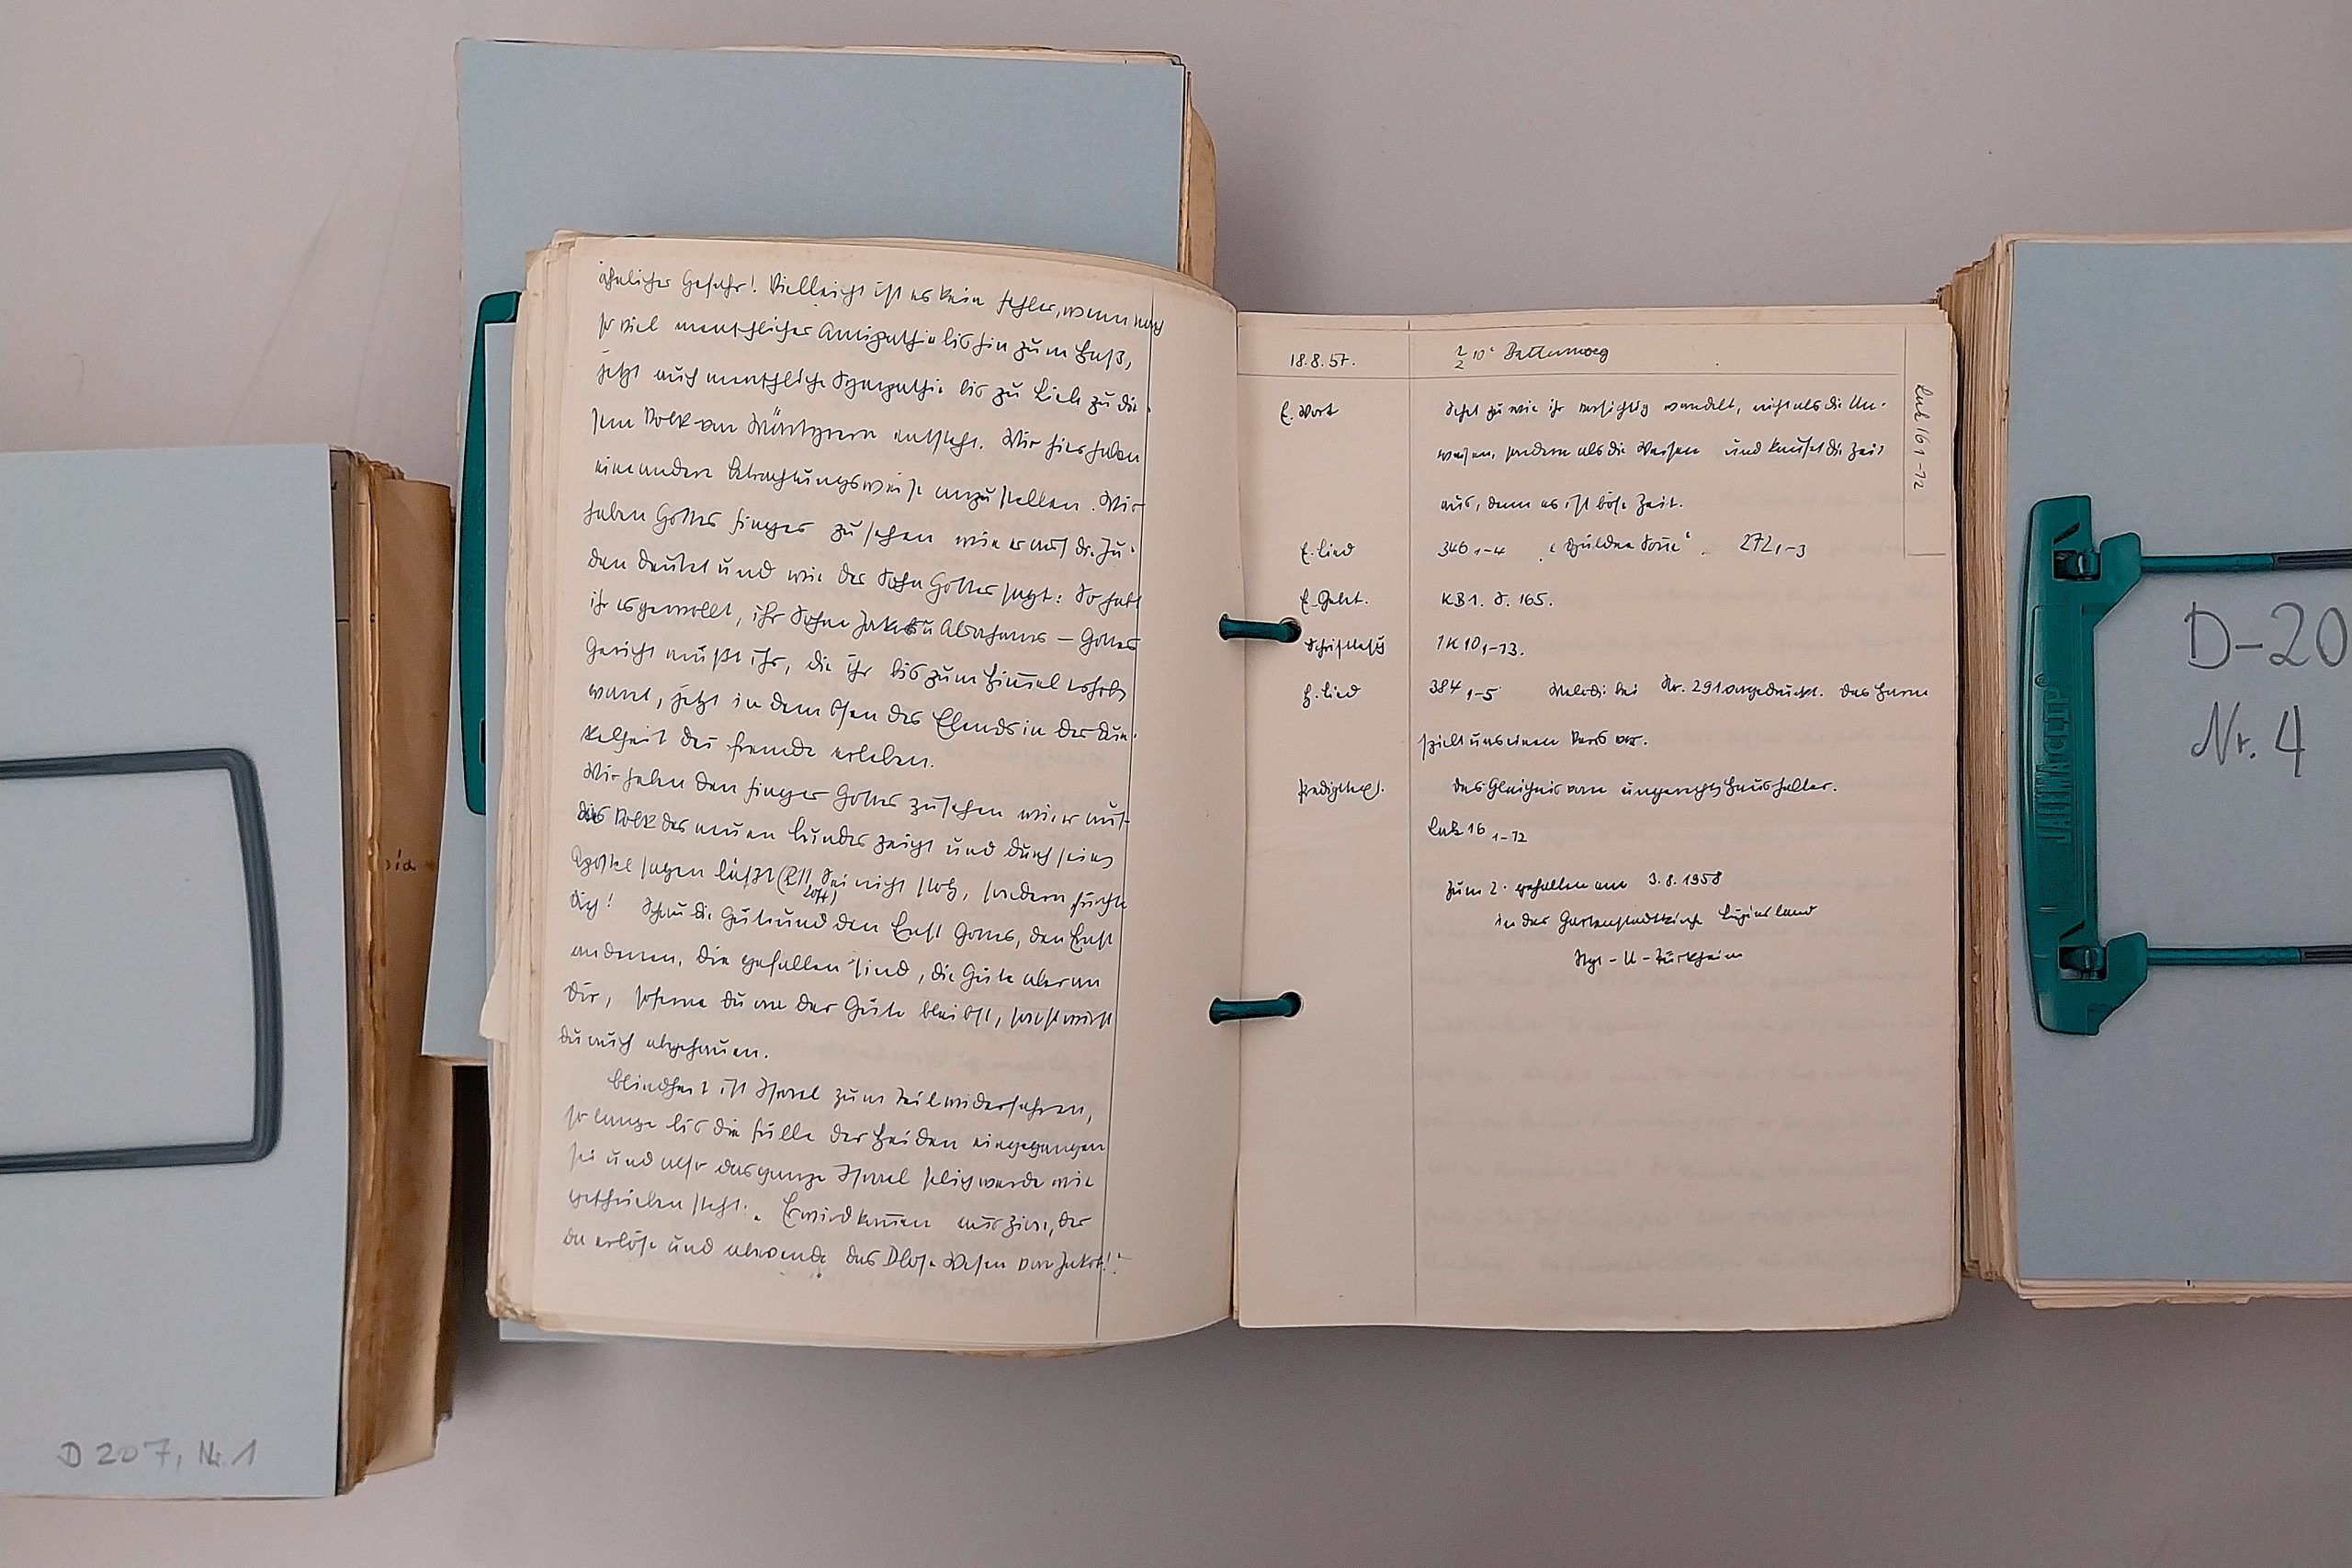 ähnlicher Gefahr! Vielleicht ist es kein Fehler, wenn nach
so viel menschlicher Antipathie bis hin zum Haß,
jetzt auch menschliche Sympathie bis zu Liebe zu die-
sem Volk von Märtyrern entsteht. Wir hier haben
eine andere Betrachtungsweise anzustellen. Wir
haben Gottes Finger zu sehen wie er auf die Ju-
den deutet und wie der Sohn Gottes sagt: So habt
ihr es gewollt, ihr Söhne Jakobs u Abrahams – Gottes
Gericht müßt ihr, die ihr bis zum Himmel erhoben
wart, jetzt in dem Ofen des Elends in der Dun-
kelheit der Fremde erleben.
Wir haben den Finger Gottes zu sehen wie er auf
das Volk des neuen Bundes zeigt und durch seinen
Apostel sagen läßt (R 11, 20ff) Sei nicht stolz, sondern fürchte
dich! Schau die Güte und den Ernst Gottes, den Ernst
an denen, die gefallen sind, die Güte aber an
dir, soferne du an der Güte bleibst, sonst wirst
du auch abgehauen.
Blindheit ist Israel zum Teil widerfahren,
so lange bis die Fülle der Heiden eingegangen
sei und also das ganze Israel selig werde wie
geschrieben steht: „Er wird kommen aus Zion, der
da erlöse und abwende das gottlose Wesen von Jakob!"
18.8.57.
½ 10ʰ Dettenweg
Luk 16 1-12
E. Wort
Sehet zu wie ihr vorsichtig wandelt, nicht als die Un-
weisen, sondern als die Weisen und kaufet die Zeit
aus, denn es ist böse Zeit.
E. Lied
346 1-4 „güldne Sonne". 272 1-3
E. Gebet.
KB 1. S. 165.
Schriftlesg
1 K 10 1-13.
H. Lied
384 1-5 Melodie bei Nr. 291 abgedruckt.
spielt uns einen Vers vor.
Predigttext.
Das Gleichnis vom ungerechten Haushalter.
Luk 16 1-12
zum 2. gehalten am 3.8.1958
in der Gartenstadtkirche Luginsland
Stgt - U - Türkheim
D 207, Nr. 1
D-20
Nr. 4